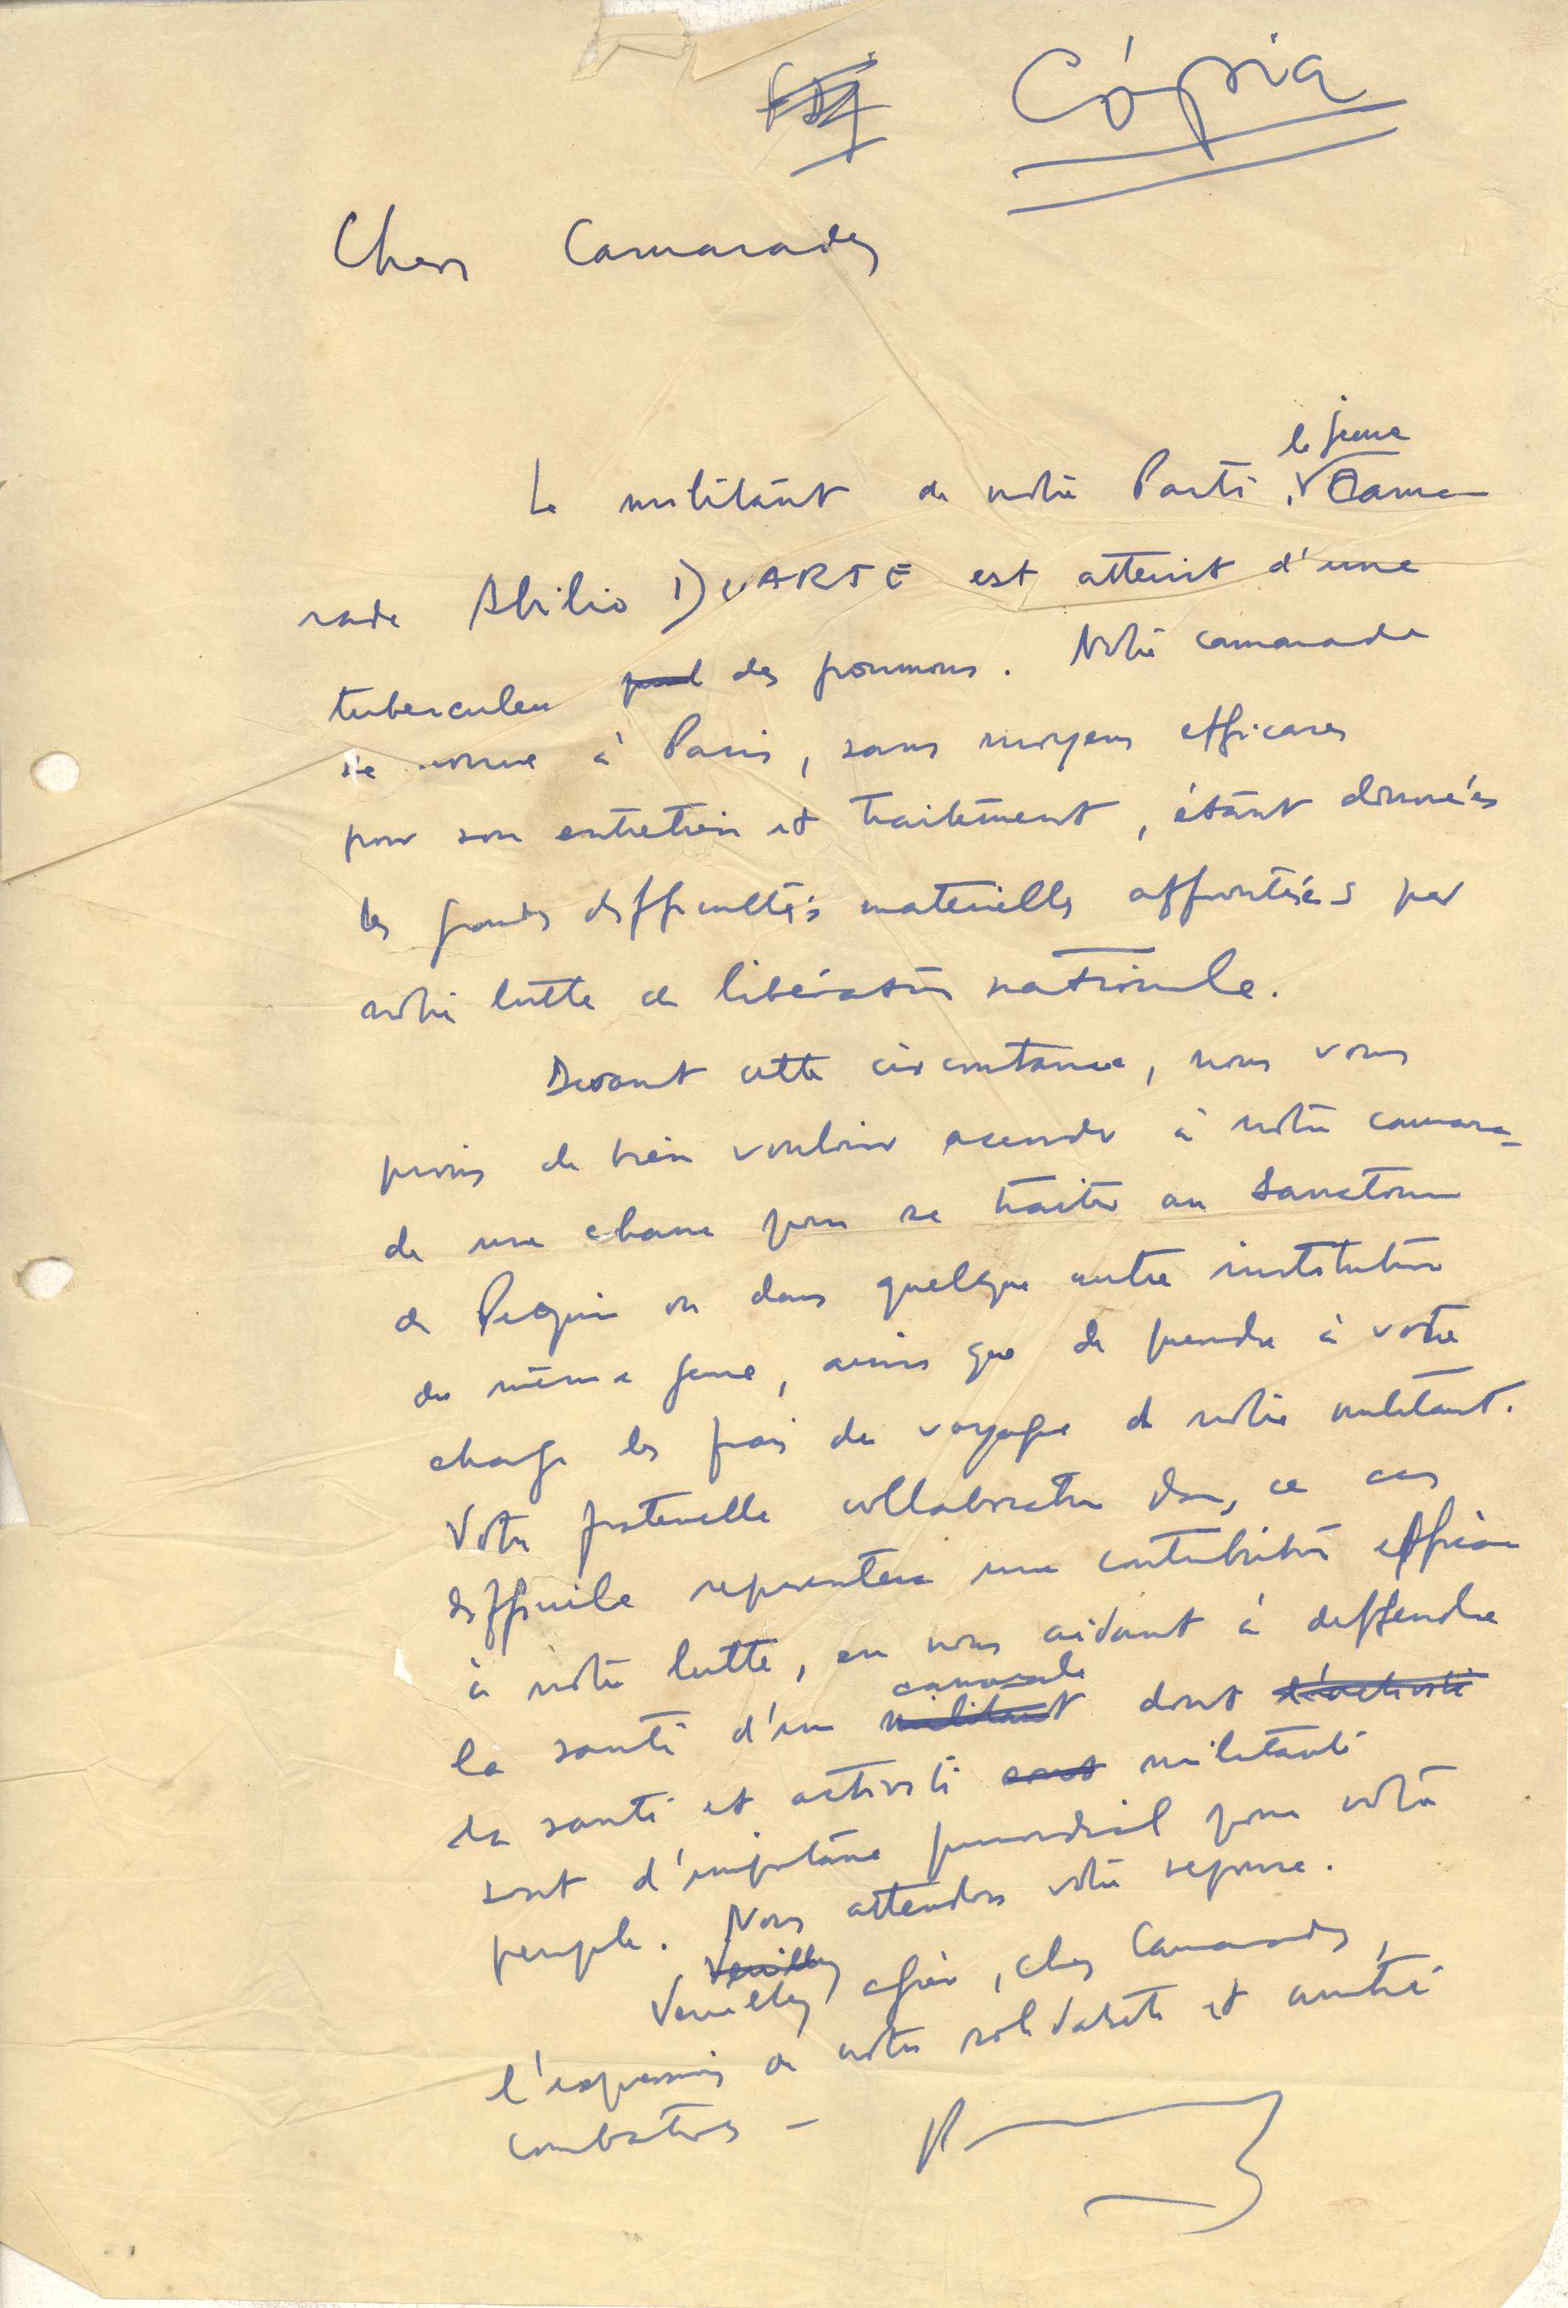 Cópia
Chers Camarades
le jeune
Le militant de notre Parti, Cama-
rade Abilio DUARTE est atteint d'une
tuberculeu des poumons. Notre camarade
se trouve à Paris, sans moyens efficaces
pour son entretien et traitement, étant données
les grandes difficultés materielles affrontées par
notre lutte de libération nationale.
Devant cette circontance, nous vous
prions de bien vouloir acender à notre camara-
de une chance pour se traiter au Sanatorium
de Pequin ou dans quelque autre institution
du même genre, ainsi que de prendre à votre
charge les frais de voyage de notre militant.
Votre fraternelle collaboration dans ce cas
difficile representera une contribution efficace
à notre lutte, en nous aidant à deffendre
camarade
la santé d'un militant dont l'activité
la santé et activité sont militante
sont d'importance primordial pour notre
peuple. Nous attendons votre reponse.
Veuillez
Veuillez agréer, chers Camarades,
l'expression de notre solidarité et amitié
combatives -